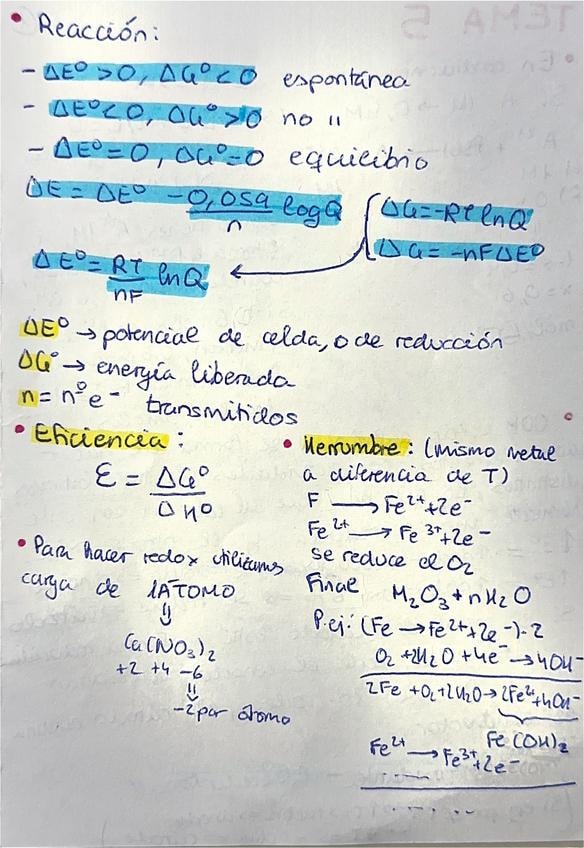 • Reacción:
- ΔE⁰ > 0, ΔG⁰ < 0 espontánea
- ΔE⁰ < 0, ΔG⁰ > 0 no "
- ΔE⁰ = 0, ΔG⁰ = 0 equilibrio
ΔE = ΔE⁰ - 0,059/n log Q
ΔG = -RT ln Q
ΔG = -nFΔE⁰
ΔE⁰ = RT/nF ln Q
ΔE⁰ → potencial de celda, o de reducción
ΔG⁰ → energía liberada
n = nº e⁻ transmitidos
• Eficiencia:
ε = ΔG⁰/ΔH⁰
• Para hacer redox utilizamos
carga de 1 ÁTOMO
⇓
Ca(NO₃)₂
+2 +4 -6
⇓
-2 por átomo
• Herrumbre: (mismo metal
a diferencia de T)
F → Fe²⁺+2e⁻
Fe²⁺ → Fe³⁺+2e⁻
se reduce el O₂
Final M₂O₃ + nH₂O
P.ej: (Fe → Fe²⁺+2e⁻)·2
O₂ + 2H₂O + 4e⁻ → 4OH⁻
2Fe + O₂ + 2H₂O → 2Fe²⁺ + 4OH⁻
Fe(OH)₂
Fe²⁺ → Fe³⁺+2e⁻
.....